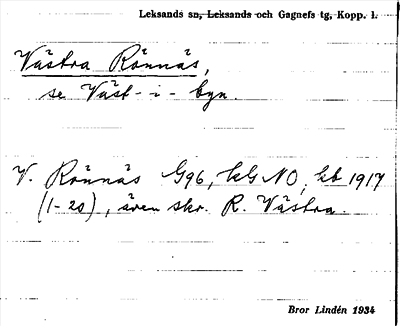 Leksands sn, Leksands och Gagnefs tg, Kopp. l.
Västra Rönnäs,
se Väst-i-byn.
V. Rönnäs G96, kGNO, kb 1917
(1-20), även skr. R. Västra.
Bror Lindén 1934